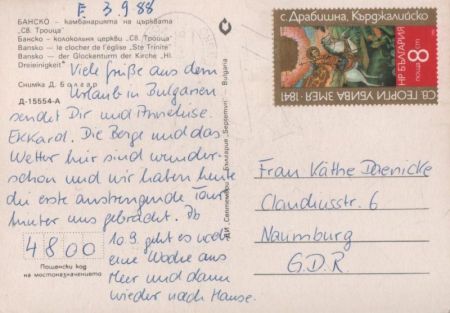 E 3.9.88
БАНСКО – камбанарията на църквата
"Св. Троица"
Банско – колокольня церкви „Св. Троица"
Bansko — le clocher de l'église "Ste Trinité"
Bansko — der Glockenturm der Kirche „Hl.
Dreieinigkeit"
Снимка Д. Българ
Д-15554-А
Viele Grüße aus dem
Urlaub in Bulgarien
sendet Dir und Anneliese.
Ekkard. Die Berge und das
Wetter hier sind wunder-
schön und wir haben heute
die erste anstrengende Tour
hinter uns gebracht. Ab
10.9. geht es noch
eine Woche ans
Meer und dann
wieder nach Hause.
4800
Пощенски код
на местоназначението
ДИ „Септември" България "Septemvri" Bulgaria
с. Драбишна, Кърджалийско
СВ. ГЕОРГИ УБИВА ЗМЕЯ·1841
НР БЪЛГАРИЯ
поща 8 ст
Frau Käthe Daenicke
Claudiusstr. 6
Naumburg
G.D.R.